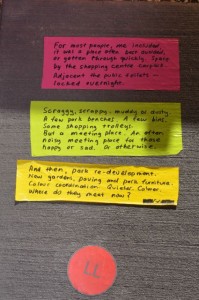 For most people, me included,
it was a place often best avoided,
or gotten through quickly. Typic
by the shopping centre carpark.
Adjacent the public toilets -
locked overnight.
Scraggy, scrappy, muddy or dusty
A few park benches. A few bins.
Some shopping trolleys.
But a meeting place. An often
noisy meeting place for those
happy or sad. Or otherwise.
And then, park re-development.
New gardens, paving and park furniture.
Colour coordination. Quieter. Calmer.
Where do they meet now?
11